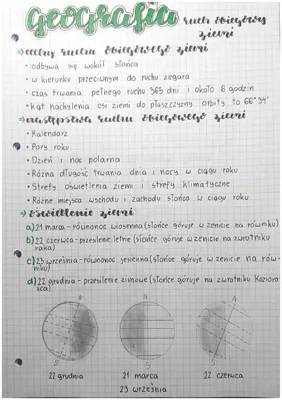 Geografia ruch obiegowy ziemi
cechy ruchu obiegowego ziemi
• odbywa się wokół słońca
• w kierunku przeciwnym do ruchu zegara
• czas trwania pełnego ruchu 365 dni i około 6 godzin
• kąt nachylenia osi ziemi do płaszczyzny orbity to 66°34'
następstwa ruchu obiegowego ziemi
• Kalendarz
• Pory roku
• Dzień i noc polarna
• Różna długość trwania dnia i nocy w ciągu roku
• Strefy oświetlenia ziemi i strefy klimatyczne
• Różne miejsca wschodu i zachodu słońca w ciągu roku
Oświetlenie ziemi
a) 21 marca - równonoc wiosenna (słońce góruje w zenicie na równiku)
b) 22 czerwca - przesilenie letnie (słońce góruje w zenicie na zwrotniku
raka)
c) 23 września - równonoc jesienna (słońce góruje w zenicie na rów-
niku)
d) 22 grudnia - przesilenie zimowe (słońce góruje na zwrotniku Kozioro-
żca)
22 grudnia 21 marca 22 czerwca
23 września